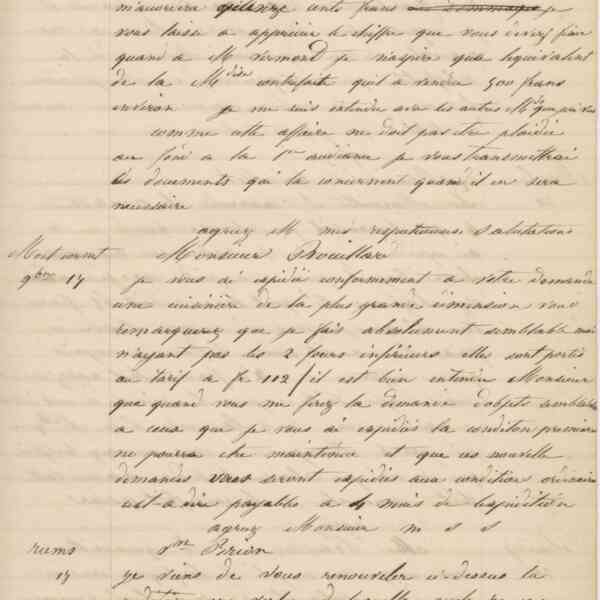 cents frans je
vous laisse a apprecier le chiffre que vous devez fixer
quand a M. je n'aspire qua lequivalent
de la M dise contrefaite quil a vendu 500 frans
environ je me suis entendu avec les autres
comme cette affaire ne doit pas etre plaidée
au fond a la 1re audiance je vous transmettrai
les documents qui la concernent quand il en sera
necessaire
agreez M mes respectueuses Salutations
9bre 17
Monsieur Brouillard
je vous ai expedié conformement a votre demande
une cuisinière de la plus grande dimension vous
remarquerez que je fais absolument semblable mais
n'ayant pas les 2 fours inferieurs elles sont portés
au tarif a fr 112 / il est bien entendu Monsieur
que quand vous me ferez la demande dobjets semblables
a ceux que je vous ai expediés la condition premiere
ne pourra etre maintenue et que vos nouvelle
demandes vous seront expediés aux condition ordinaire
cest a dire payables a 4 mois de lexpedition
agreez Monsieur m s s
reims
17
Mr Pirion
je viens de vous renouveler ci-dessus la